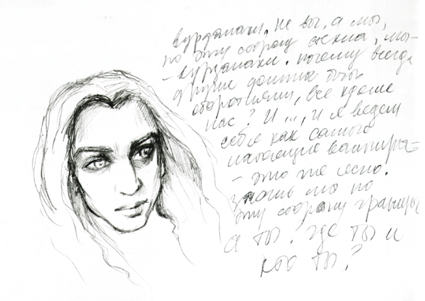 вурдалаки. Не вы, а мы,
по эту сторону стекла, мы-
- вурдалаки. почему всегда
другие должны быть
оборотнями, все кроме
нас? И ..., и я ведем
себя как самые
настоящие вампиры -
- это же ясно.
значит мы по
эту сторону границы
а ты. где ты и
кто ты?